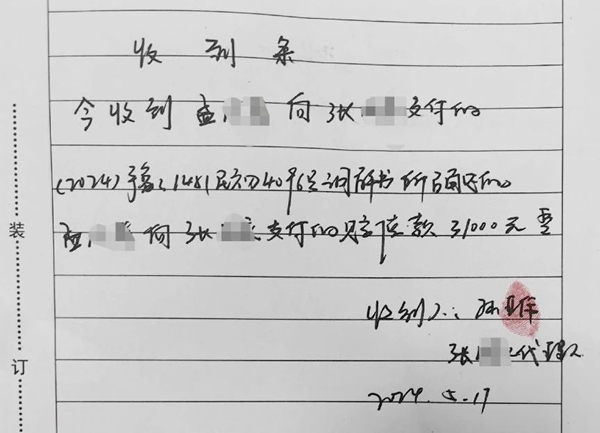 收到条
今收到孟 向张 支付的
(2024)豫1481民初40号民事调解书所确定的
孟 向张 支付的 借款31000元整
装
订
收到人:孙
张 代理人
2024.5.17